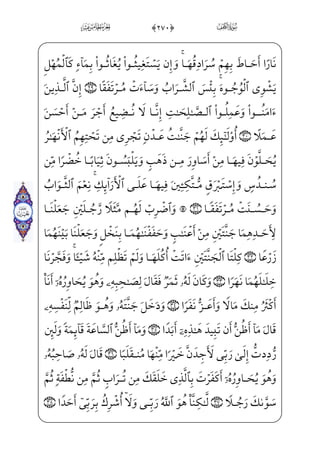 سُورَةُ الكَهْفِ
﴿٢٧٠﴾
نَارًا أَحَاطَ بِهِمْ سُرَادِقُهَاۚ وَإِن يَسْتَغِيثُوا۟ يُغَاثُوا۟ بِمَآءٍ كَٱلْمُهْلِ
يَشْوِى ٱلْوُجُوهَۚ بِئْسَ ٱلشَّرَابُ وَسَآءَتْ مُرْتَفَقًا ۝٢٩ إِنَّ ٱلَّذِينَ
ءَامَنُوا۟ وَعَمِلُوا۟ ٱلصَّٰلِحَٰتِ إِنَّا لَا نُضِيعُ أَجْرَ مَنْ أَحْسَنَ
عَمَلًا ۝٣٠ أُو۟لَٰٓئِكَ لَهُمْ جَنَّٰتُ عَدْنٍ تَجْرِى مِن تَحْتِهِمُ ٱلْأَنْهَٰرُ
يُحَلَّوْنَ فِيهَا مِنْ أَسَاوِرَ مِن ذَهَبٍ وَيَلْبَسُونَ ثِيَابًا خُضْرًا مِّن
سُندُسٍ وَإِسْتَبْرَقٍ مُّتَّكِـِٔينَ فِيهَا عَلَى ٱلْأَرَآئِكِۚ نِعْمَ ٱلثَّوَابُ
وَحَسُنَتْ مُرْتَفَقًا ۝٣١ ۞ وَٱضْرِبْ لَهُم مَّثَلًا رَّجُلَيْنِ جَعَلْنَا
لِأَحَدِهِمَا جَنَّتَيْنِ مِنْ أَعْنَٰبٍ وَحَفَفْنَٰهُمَا بِنَخْلٍ وَجَعَلْنَا بَيْنَهُمَا
زَرْعًا ۝٣٢ كِلْتَا ٱلْجَنَّتَيْنِ ءَاتَتْ أُكُلَهَا وَلَمْ تَظْلِم مِّنْهُ شَيْـًٔاۚ وَفَجَّرْنَا
خِلَٰلَهُمَا نَهَرًا ۝٣٣ وَكَانَ لَهُۥ ثَمَرٌ فَقَالَ لِصَٰحِبِهِۦ وَهُوَ يُحَاوِرُهُۥٓ أَنَا۠
أَكْثَرُ مِنكَ مَالًا وَأَعَزُّ نَفَرًا ۝٣٤ وَدَخَلَ جَنَّتَهُۥ وَهُوَ ظَالِمٌ لِّنَفْسِهِۦ
قَالَ مَآ أَظُنُّ أَن تَبِيدَ هَٰذِهِۦٓ أَبَدًا ۝٣٥ وَمَآ أَظُنُّ ٱلسَّاعَةَ قَآئِمَةً وَلَئِن
رُّدِدتُّ إِلَىٰ رَبِّى لَأَجِدَنَّ خَيْرًا مِّنْهَا مُنقَلَبًا ۝٣٦ قَالَ لَهُۥ صَاحِبُهُۥ
وَهُوَ يُحَاوِرُهُۥٓ أَكَفَرْتَ بِٱلَّذِى خَلَقَكَ مِن تُرَابٍ ثُمَّ مِن نُّطْفَةٍ ثُمَّ
سَوَّىٰكَ رَجُلًا ۝٣٧ لَّٰكِنَّا۠ هُوَ ٱللَّهُ رَبِّى وَلَآ أُشْرِكُ بِرَبِّىٓ أَحَدًا ۝٣٨